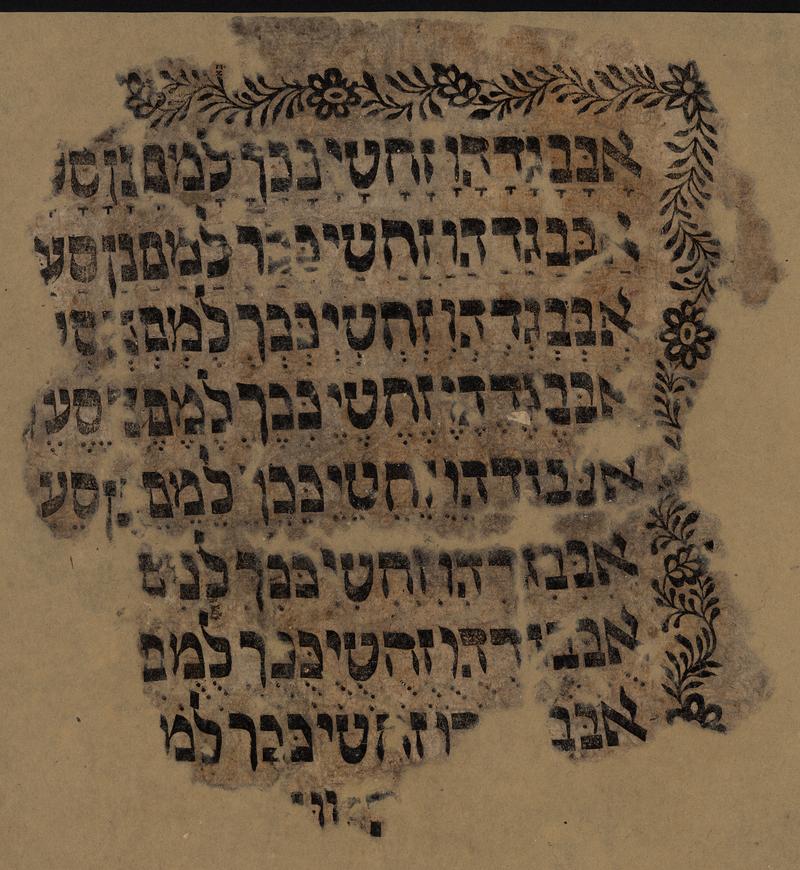 אבבגדהוזחטיככךלמםנןסע
אבבגדהוזחטיככךלמםנןסע
אבבגדהוזחטיככךלמם ס
אבבגדהוזחטיככךלמם סע
אבבגדהוזחטיככךלמם ןסע
אבבגדהוזחטיככךלמם
אבב דהוזחטיככךלמם
אבב וזחטיככךלמ